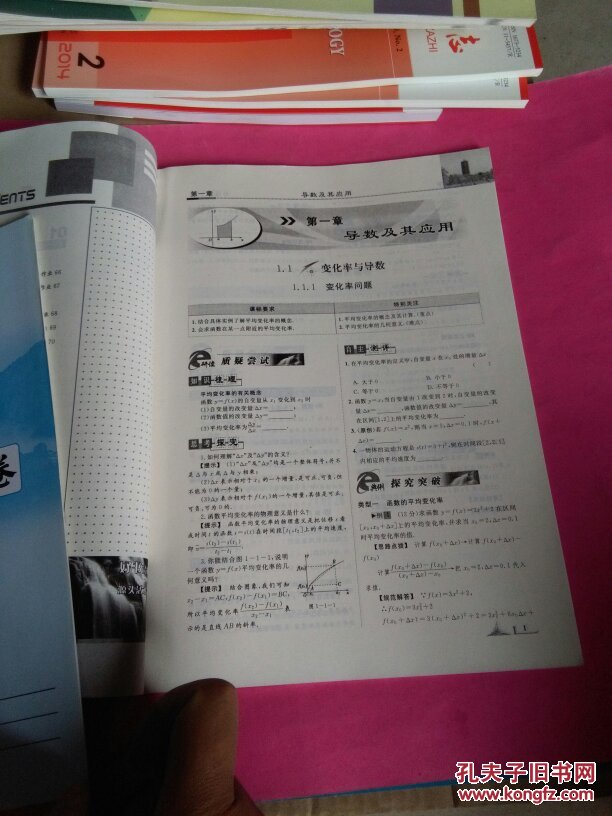 2
2014
OGY
No. 2
AZHI
志
ENTS
作业 66
作业 67
68
69
70
第一章
导数及其应用
第一章
导数及其应用
1.1 变化率与导数
1.1.1 变化率问题
课标要求
特别关注
1.结合具体实例了解平均变化率的概念.
2.会求函数在某一点附近的平均变化率.
1.平均变化率的概念及其计算.(重点)
2.平均变化率的几何意义.(难点)
研读 质疑尝试
知识梳理
平均变化率的有关概念
函数y=f(x)的自变量从x₁变化到x₂时
(1)自变量的改变量Δx=
(2)函数值的改变量Δy=
(3)平均变化率Δy/Δx=
思考探究
1.如何理解"Δx"及"Δy"的含义?
【提示】 (1)"Δx"及"Δy"均是一个整体符号,并不
是Δ与x或Δ与y相乘;
(2)Δx表示相对于x₁的一个增量,是可正、可负,但
不能为0的一个量;
(3)Δy表示相对于f(x₁)的一个增量,其值是可正、
可负,可为0的.
2.函数平均变化率的物理意义是什么?
【提示】 函数平均变化率的物理意义是把位移s看
成时间t的函数s=s(t)在时间段[t₁,t₂]上的平均速度,
3.你能结合图1-1-1,说明
一个函数y=f(x)平均变化率的几
何意义吗?
【提示】 结合图象,我们可知
x₂-x₁=AC,f(x₂)-f(x₁)=BC,
所以平均变化率f(x₂)-f(x₁)/x₂-x₁表
示的是直线AB的斜率.
图1-1-1
自主测评
1.在平均变化率的定义中,自变量x在x₀处的增量Δx
A.大于0 B.小于0
C.等于0 D.不等于0
2.函数y=x当自变量由1改变到2时,自变量的改变
量Δx= ,函数值的改变量Δy= ,其
在区间[1,2]上的平均变化率为
4.一物体的运动方程是
内相应的平均速度为
典例 探究突破
类型一 函数的平均变化率
例1 (12分)求函数y=f(x)=3x²+2在区间
[x₀,x₀+Δx]上的平均变化率,并求当x₀=2,Δx=0.1
时平均变化率的值.
【思路点拨】 计算f(x₀+Δx)→计算f(x₀+Δx)-
f(x₀)
→把x₀=2,Δx=0.1代入
求值.
【规范解答】 ∵f(x)=3x²+2,
∴f(x₀)=3x₀²+2
1
卷
孔夫子旧书网
www.kongfz.com